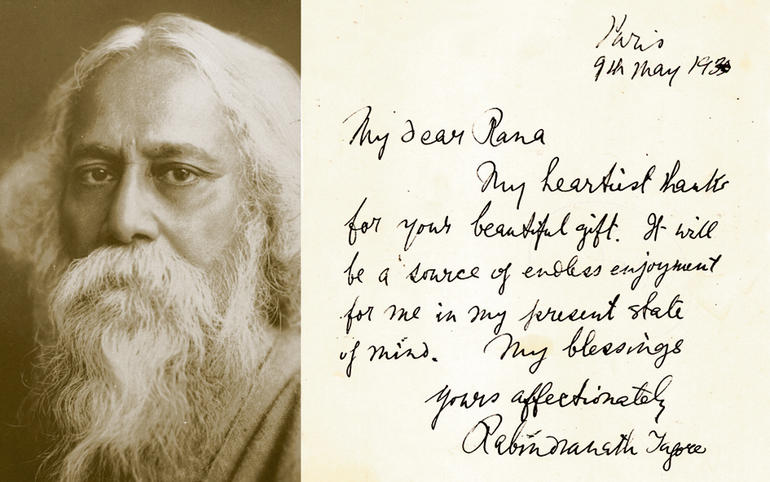 Paris
9th May 1930
My dear Rana
My heartiest thanks
for your beautiful gift. It will
be a source of endless enjoyment
for me in my present state
of mind. My blessings
Yours affectionately
Rabindranath Tagore